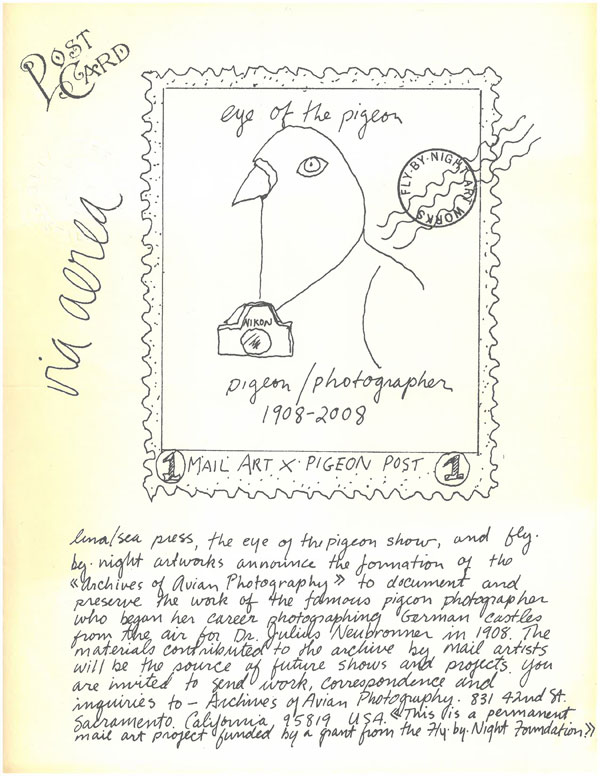 POST
CARD
via aerea
eye of the pigeon
FLY-BY-NIGHT ART WORKS
NIKON
pigeon/photographer
1908-2008
1 MAIL ART X PIGEON POST 1
luna/sea press, the eye of the pigeon show, and fly.
by.night artworks announce the formation of the
«Archives of Avian Photography» to document and
preserve the work of the famous pigeon photographer
who began her career photographing German castles
from the air for Dr. Julius Neubronner in 1908. The
materials contributed to the archive by mail artists
will be the source of future shows and projects. You
are invited to send work, correspondence and
inquiries to – Archives of Avian Photography. 831 42nd St.
Sacramento. California, 95819 USA. «This is a permanent
mail art project funded by a grant from the Fly.by.Night Foundation.»